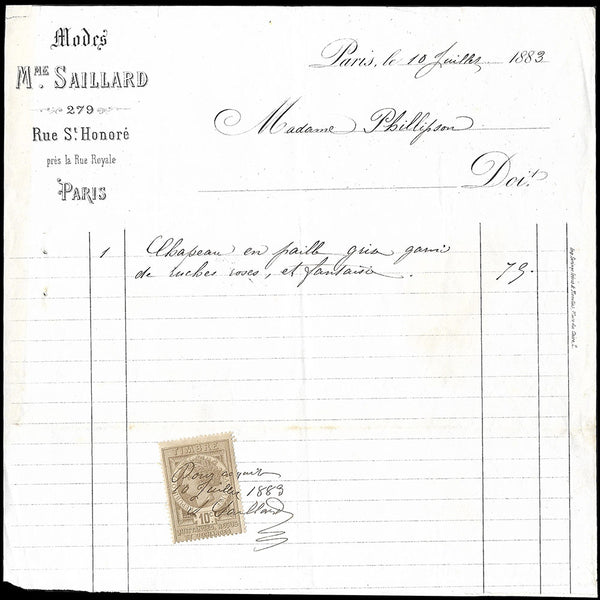 Modes
Mme. SAILLARD
279
Rue St. Honoré
près la Rue Royale
PARIS
Paris, le 10 Juillet 1883
Madame Phillipson
Doit
1 Chapeau en paille grise garni
de ruches roses, et fantaisie. 75.
TIMBRE
Pour acquit
Juillet 1883
Saillard
10c